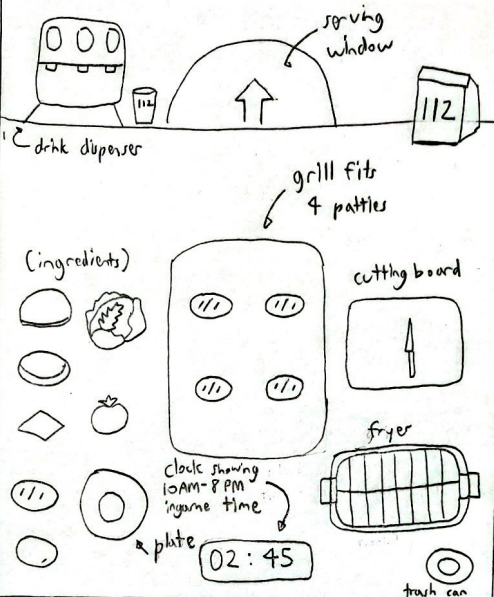 serving
window
112
112
drink dispenser
grill fits
4 patties
(ingredients)
cutting board
fryer
clock showing
10AM-8PM
ingame time
plate
02:45
trash can